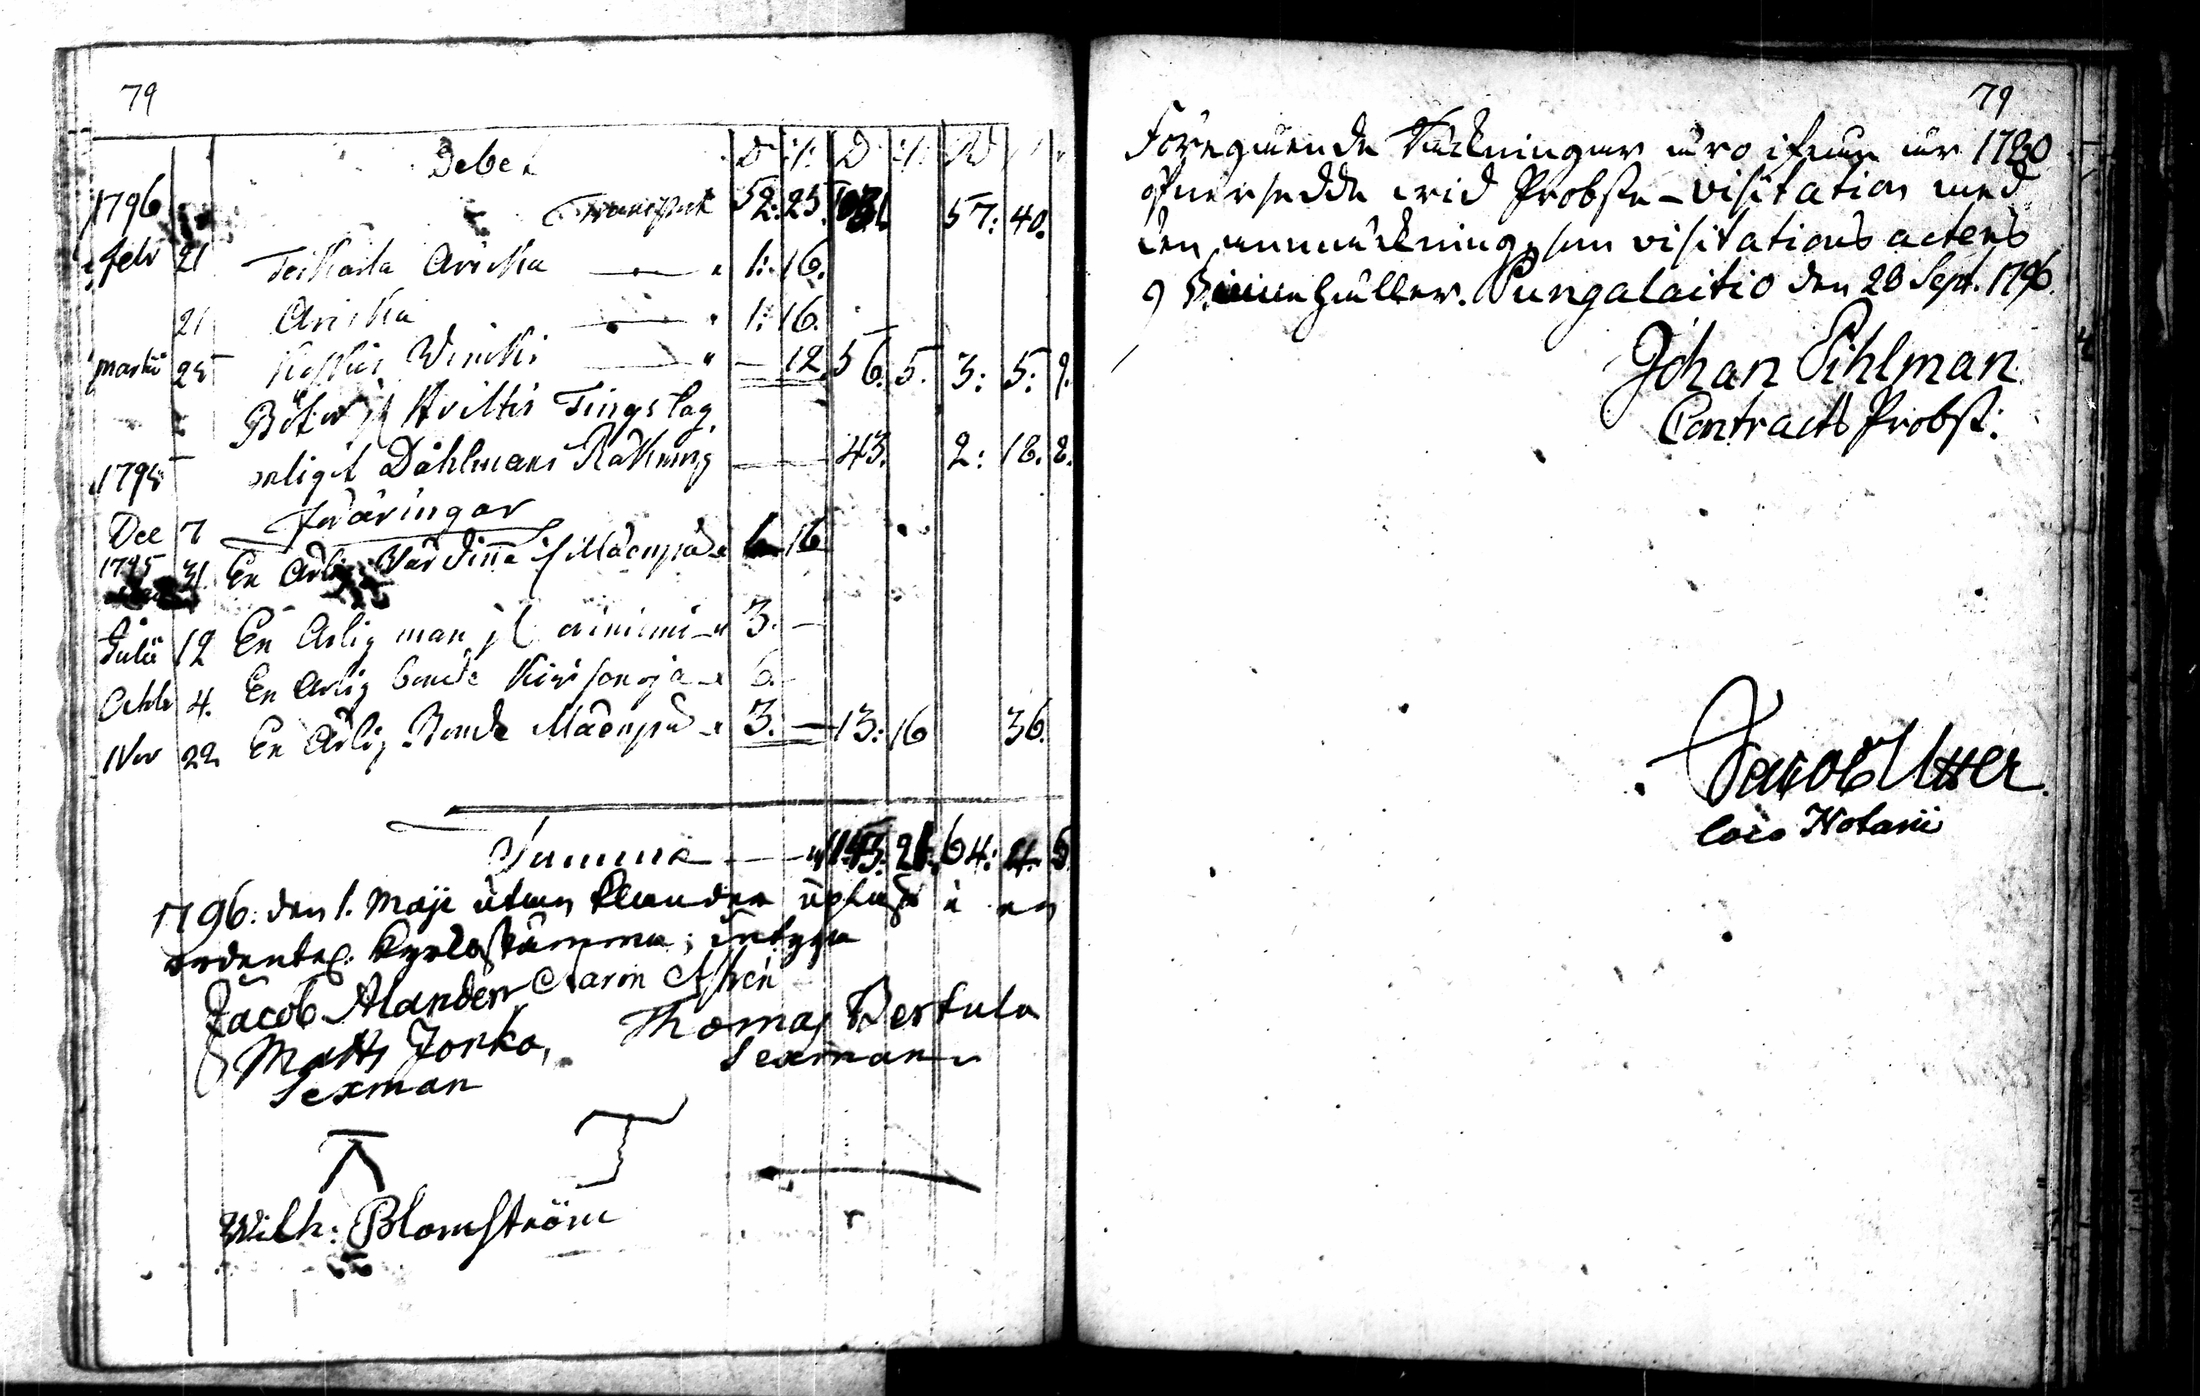 79
Debet D :/: D :/: Rd
1796 Transport 52: 25. 57: 40.
febr 21 Teikarla Aricka 1: 16.
21 Aricka 1: 16.
martii 25 Wincki — 12. 56. 5. 3: 5: 9.
Böter if Hvittis Tingslag
1795 enligit Dahlmans Räkning 43. 2: 18. 8.
Dec 7 föräringar
1795 31 En Ärlig Värdinna if 1 16
Julii 12 En Ärlig man if 3. —
Octbr 4. En Ärlig bonde 6. —
Nov 22 En Ärlig Bonde 3. — 13: 16 36.
Summa 64: 4. 5.
1796: den 1. Maji utan klander upläst i en
ordentel. Kyrkostämma; intyga
Jacob Alander Aaron
Matts Jonka, Thomas Bertula
Sexman Sexman
Wilh: Blomström
79
Föregående Räkningar äro ifrån år 1780
öfversedde wid Probste-visitation med
den anmärkning, som visitations actens
9 § innehåller. Pungalaitio den 28 Sept. 1796.
Johan Pihlman
Contracts Probst:
Jacob Utter
loco Notarii